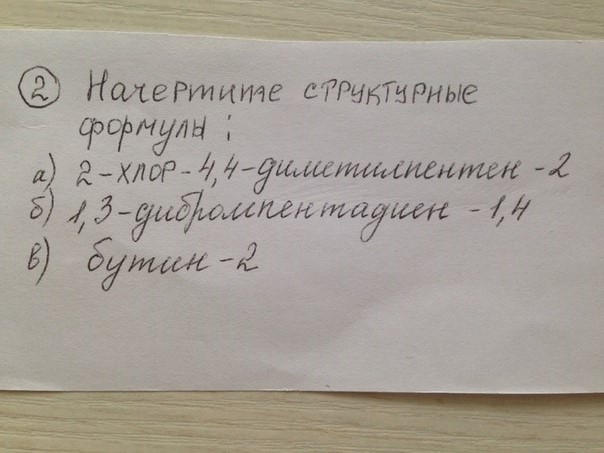 2 Начертите структурные
формулы:
а) 2-хлор-4,4-диметилпентен-2
б) 1,3-дибромпентадиен-1,4
в) бутин-2